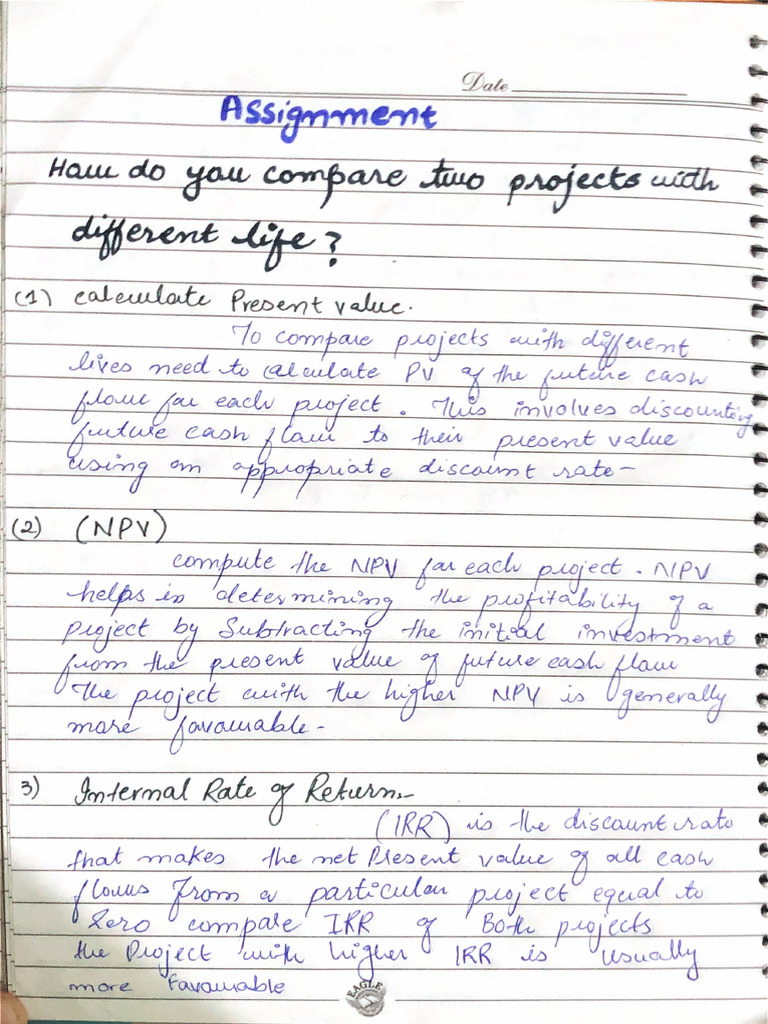 Date
Assignment
How do you compare two projects with
different life?
(1) calculate Present value.
To compare projects with different
lives need to calculate PV of the future cash
flow for each project. This involves discounting
future cash flow to their present value
using an appropriate discount rate-
(2) (NPV)
compute the NPV for each project. NPV
helps in determining the profitability of a
project by Subtracting the initial investment
from the present value of future cash flow
The project with the higher NPV is generally
more favourable-
3) Internal Rate of Return:-
(IRR) is the discount rate
that makes the net Present value of all cash
flows From a particular project equal to
Zero compare IRR of Both projects
the Project with higher IRR is Usually
more favourable
EAGLE